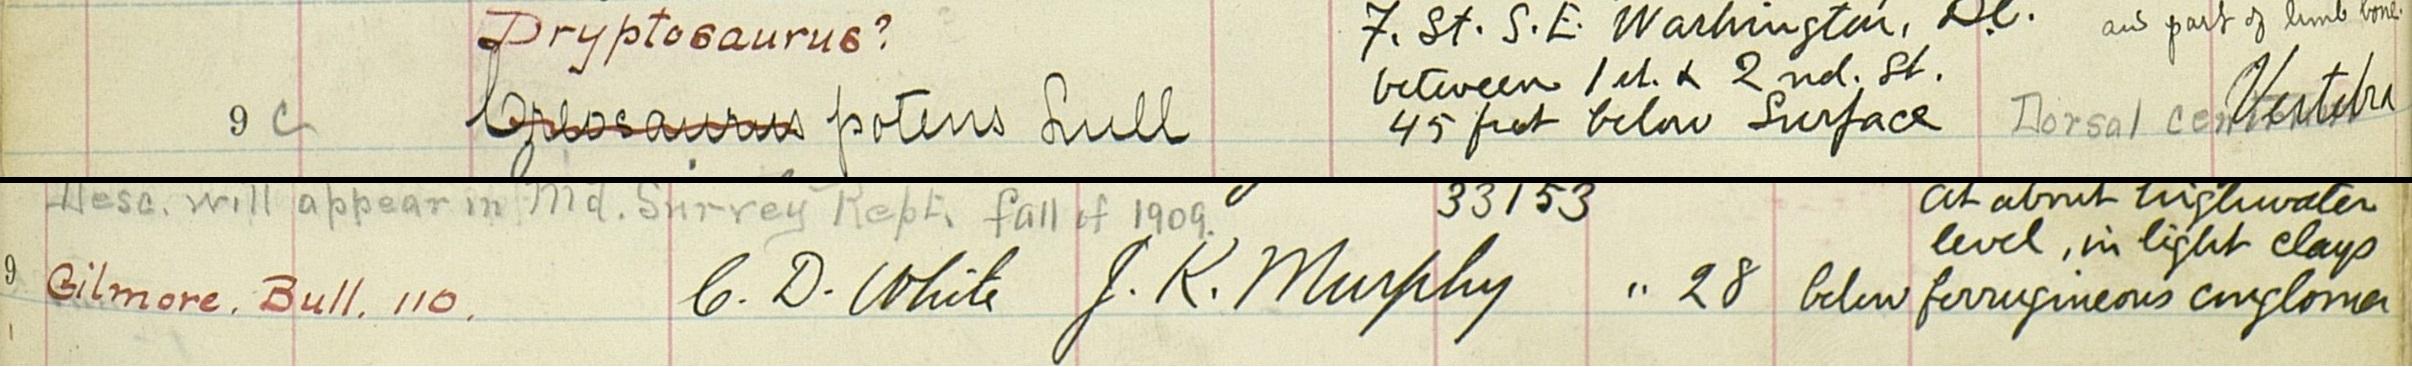 Dryptosaurus? 7. St. S.E. Washington, D.C. and part of limb bone.
between 1 st. & 2 nd. St.
9 c Creosaurus potens Lull 45 feet below Surface Dorsal centrum Vertebra
Desc. will appear in Md. Survey Rept. fall of 1909. 33153 at about highwater
level, in light clays
9 Gilmore. Bull. 110. C. D. White J. K. Murphy " 28 below ferrugineous conglomer